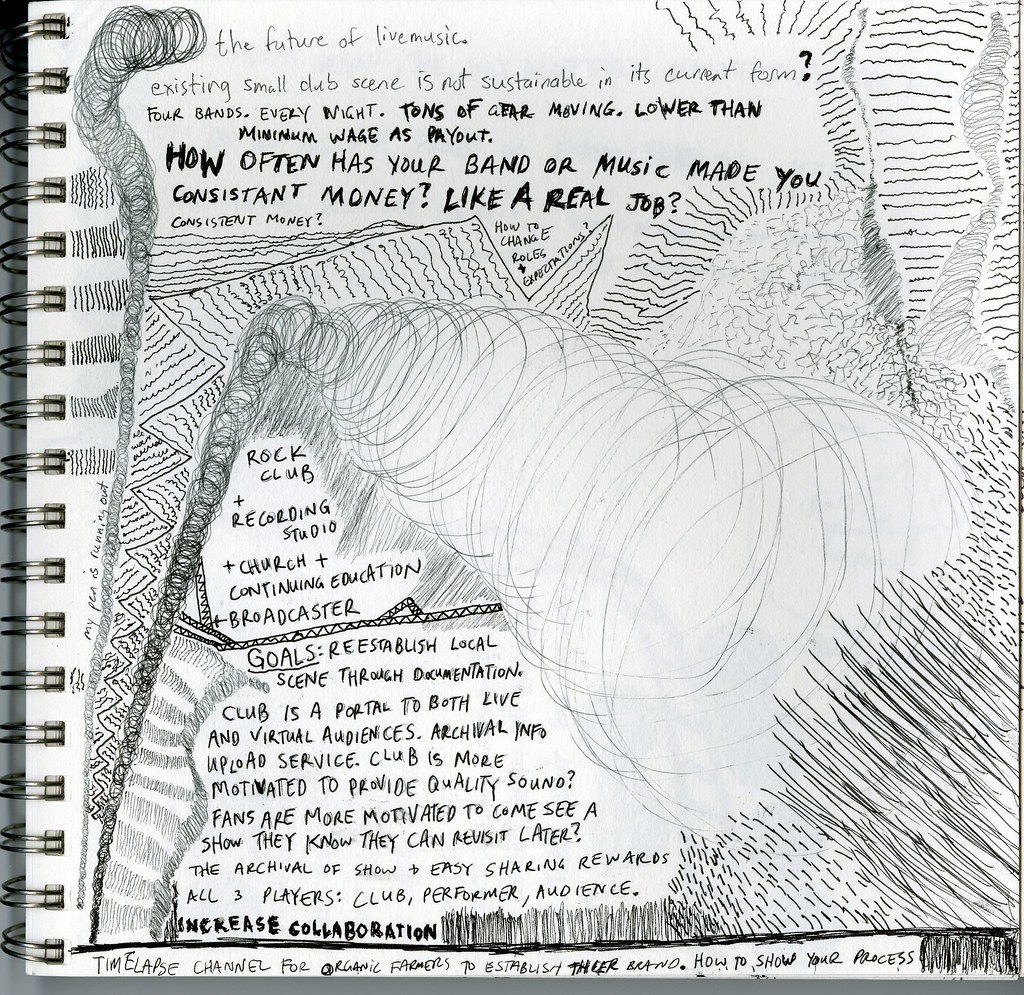 the future of livemusic.
existing small club scene is not sustainable in its current form?
FOUR BANDS. EVERY NIGHT. TONS OF GEAR MOVING. LOWER THAN
MINIMUM WAGE AS PAYOUT.
HOW OFTEN HAS YOUR BAND OR MUSIC MADE YOU
CONSISTANT MONEY? LIKE A REAL JOB?
CONSISTENT MONEY?
HOW TO
CHANGE
ROLES
+
EXPECTATIONS?
ROCK
CLUB
+
RECORDING
STUDIO
+ CHURCH +
CONTINUING EDUCATION
+ BROADCASTER
my pen is running out
GOALS: REESTABLISH LOCAL
SCENE THROUGH DOCUMENTATION.
CLUB IS A PORTAL TO BOTH LIVE
AND VIRTUAL AUDIENCES. ARCHIVAL INFO
UPLOAD SERVICE. CLUB IS MORE
MOTIVATED TO PROVIDE QUALITY SOUND?
FANS ARE MORE MOTIVATED TO COME SEE A
SHOW THEY KNOW THEY CAN REVISIT LATER?
THE ARCHIVAL OF SHOW + EASY SHARING REWARDS
ALL 3 PLAYERS: CLUB, PERFORMER, AUDIENCE.
INCREASE COLLABORATION
TIMELAPSE CHANNEL FOR ORGANIC FARMERS TO ESTABLISH THEIR BRAND. HOW TO SHOW YOUR PROCESS